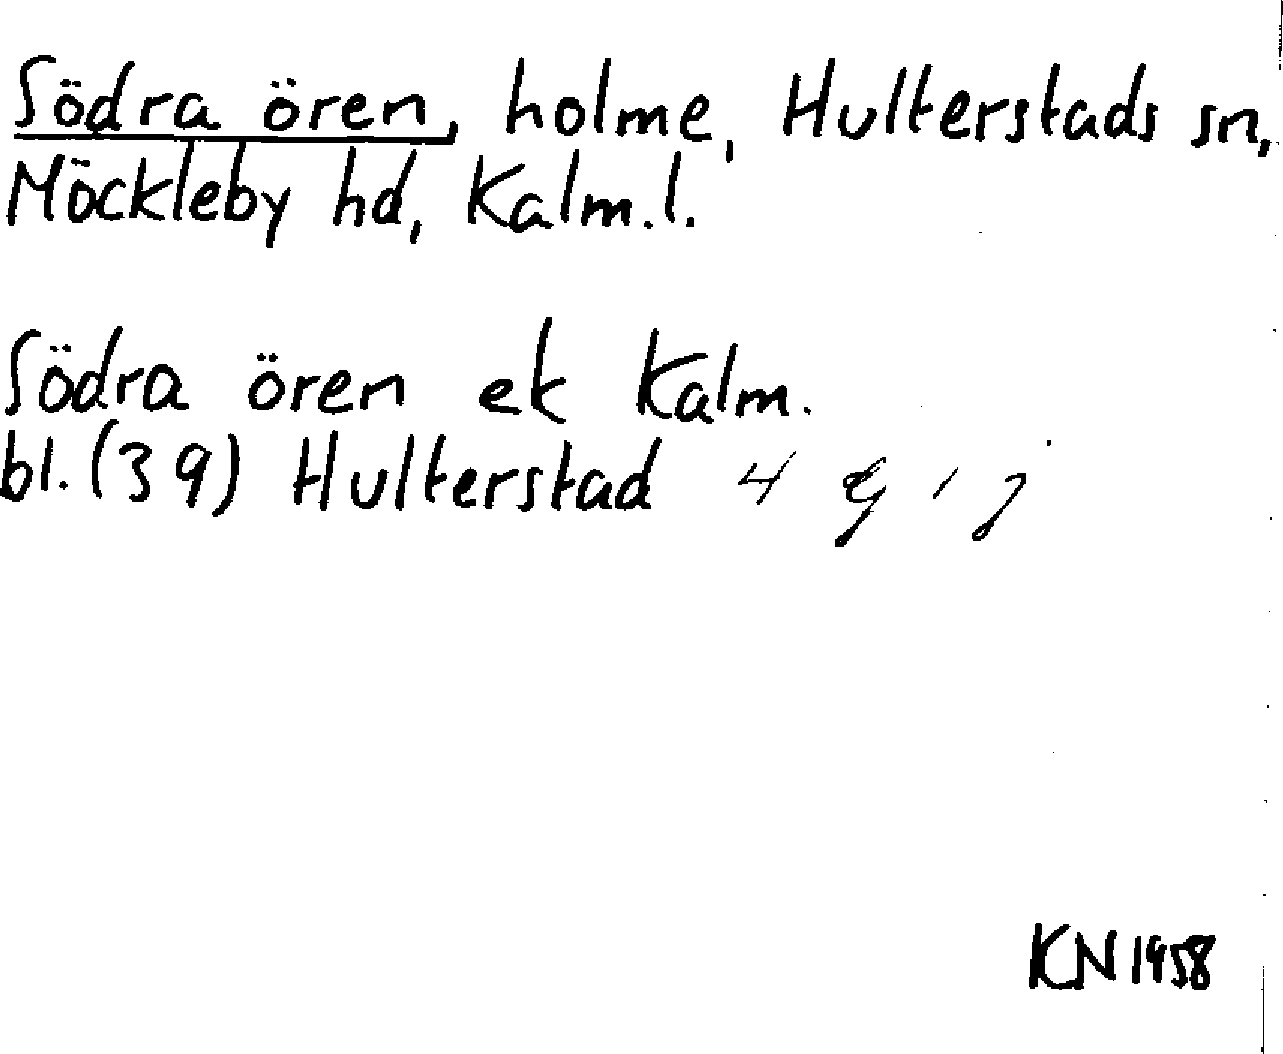 Södra ören, holme, Hulterstads sn,
Möckleby hd, Kalm.l.
Södra ören ek Kalm.
bl. (39) Hulterstad 4
KN 1958